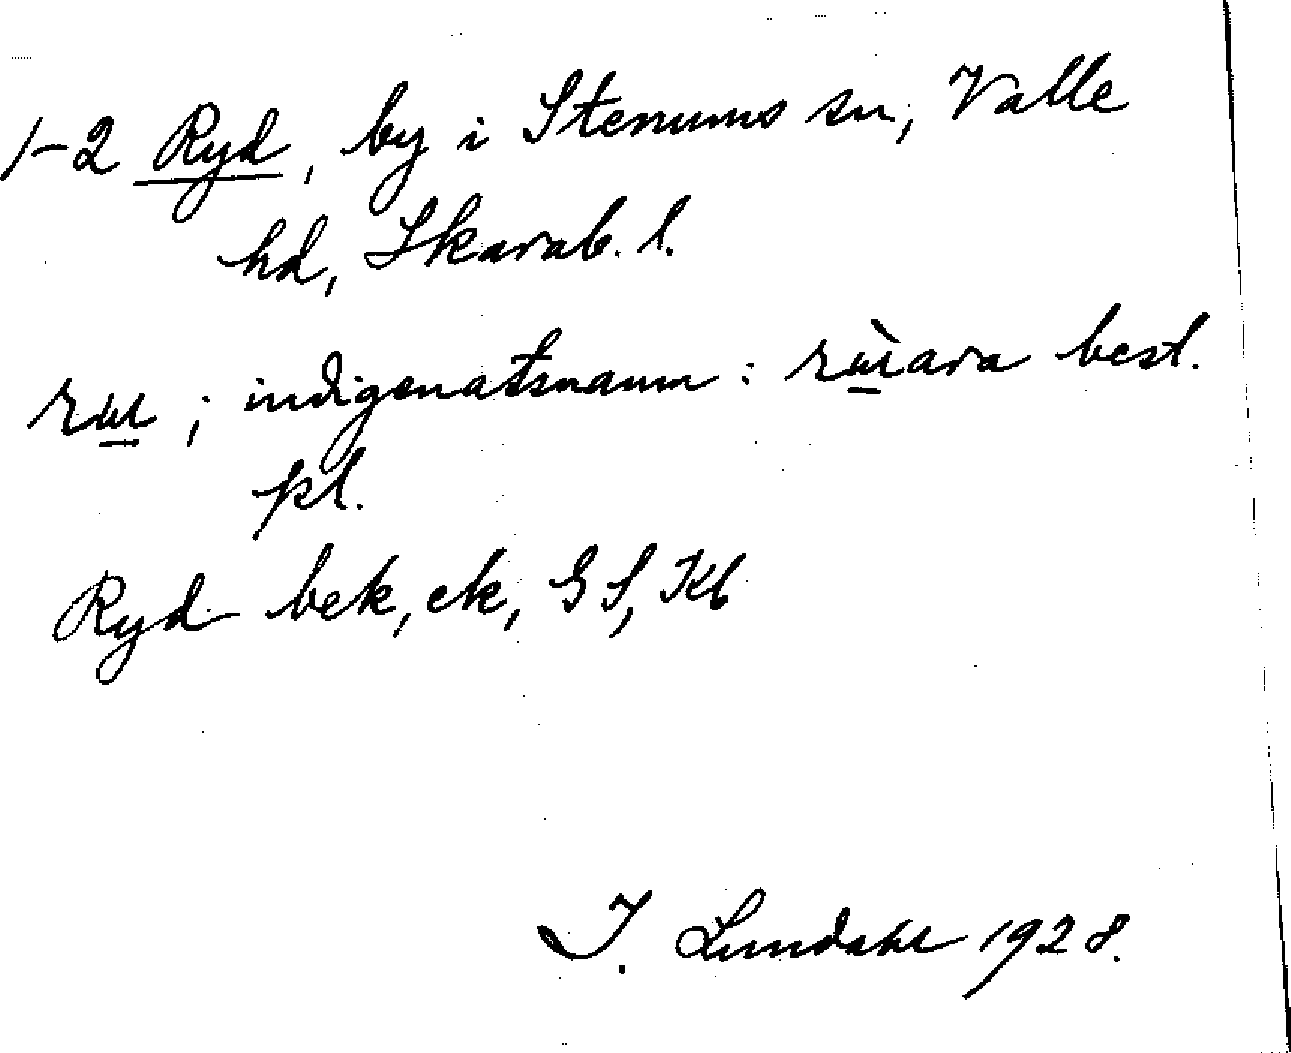 1-2 Ryd, by i Stenums sn, Valle
hd, Skarab. l.
; indigenatsnamn: best.
pl.
Ryd bek, ek, GS, Kb
I. Lundahl 1928.